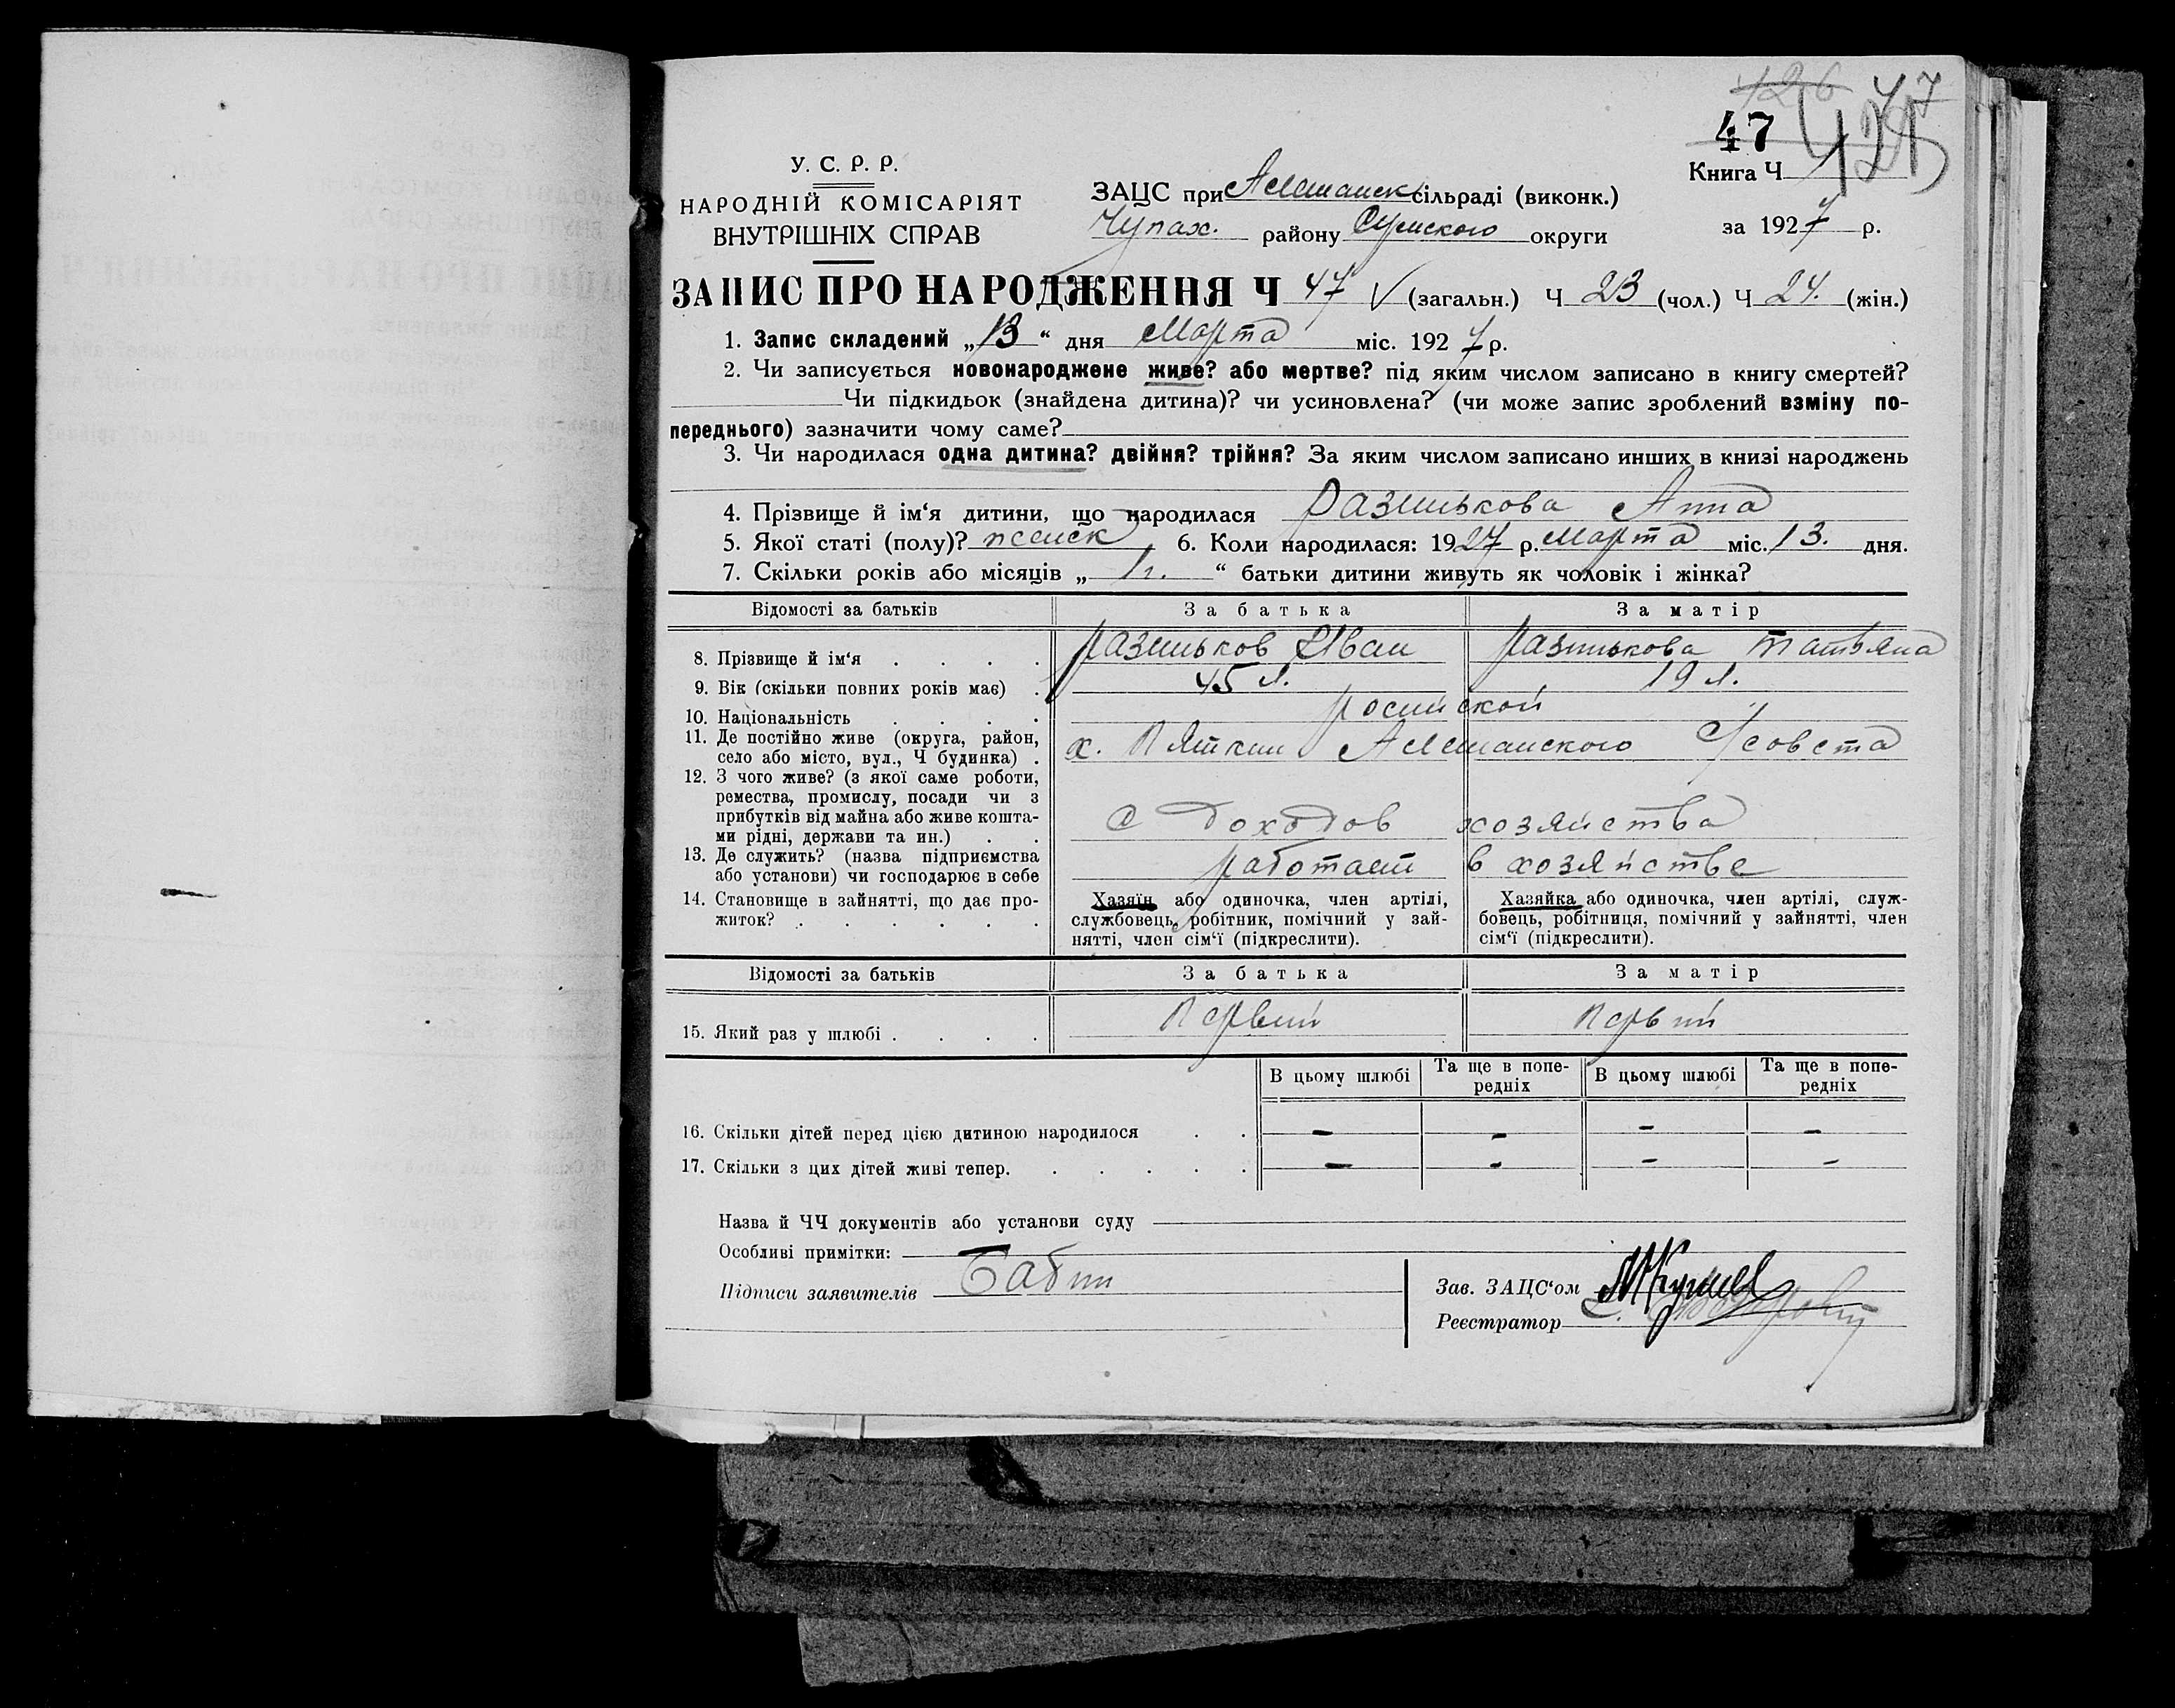 126 47
47 125
У. С. Р. Р.
НАРОДНІЙ КОМІСАРІЯТ
ВНУТРІШНІХ СПРАВ
ЗАЦС при Алешанск сільраді (виконк.)
Чупах. району Сумского округи
Книга Ч 1
за 1927 р.
ЗАПИС ПРО НАРОДЖЕННЯ Ч 47 (загальн.) Ч 23 (чол.) Ч 24. (жін.)
1. Запис складений „13“ дня Марта міс. 1927 р.
2. Чи записується новонароджене живе? або мертве? під яким числом записано в книгу смертей?
Чи підкидьок (знайдена дитина)? чи усиновлена? (чи може запис зроблений взміну по-
переднього) зазначити чому саме?
3. Чи народилася одна дитина? двійня? трійня? За яким числом записано инших в книзі народжень
4. Прізвище й ім‘я дитини, що народилася Разинькова Анна
5. Якої статі (полу)? женск 6. Коли народилася: 1927 р. Марта міс. 13. дня.
7. Скільки років або місяців „1 г.“ батьки дитини живуть як чоловік і жінка?
Відомості за батьків За батька За матір
8. Прізвище й ім‘я . . . . Разиньков Иван Разинькова Татьяна
9. Вік (скільки повних років має) . 45 л. 19 л.
10. Національність . . . . росийской
11. Де постійно живе (округа, район,
село або місто, вул., Ч будинка) . х. Пяткин Алешанского С/совета
12. З чого живе? (з якої саме роботи,
ремества, промислу, посади чи з
прибутків від майна або живе кошта-
ми рідні, держави та ин.) . . С доходов хозяйства
13. Де служить? (назва підприємства
або установи) чи господарює в себе работает в хозяйстве
14. Становище в зайнятті, що дає про-
житок? . . . . . .
Хазяїн або одиночка, член артілі,
службовець, робітник, помічний у зай-
нятті, член сім‘ї (підкреслити).
Хазяйка або одиночка, член артілі, служ-
бовець, робітниця, помічний у зайнятті, член
сім‘ї (підкреслити).
Відомості за батьків За батька За матір
15. Який раз у шлюбі . . . . Первый Первый
В цьому шлюбі Та ще в попе-
редніх В цьому шлюбі Та ще в попе-
редніх
16. Скільки дітей перед цією дитиною народилося . . – – – –
17. Скільки з цих дітей живі тепер. . . . . . – – – –
Назва й ЧЧ документів або установи суду
Особливі примітки:
Підписи заявителів Бабин
Зав. ЗАЦС‘ом
Реєстратор